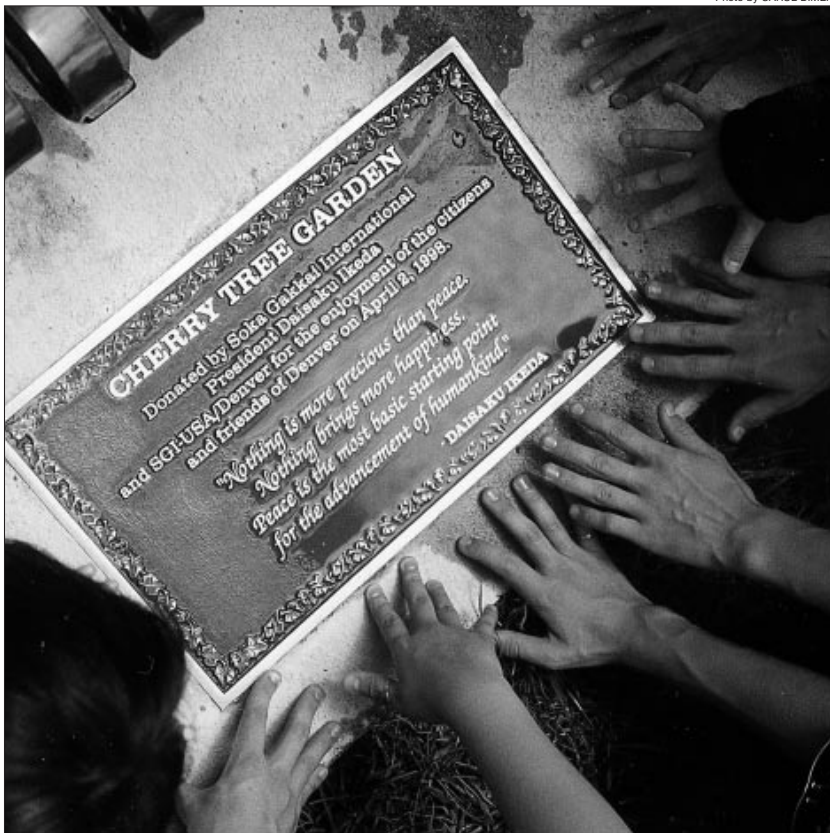 Photo by
CHERRY TREE GARDEN
Donated by Soka Gakkai International
President Daisaku Ikeda
and SGI-USA/Denver for the enjoyment of the citizens
and friends of Denver on April 2, 1998.
"Nothing is more precious than peace.
Nothing brings more happiness.
Peace is the most basic starting point
for the advancement of humankind."
-DAISAKU IKEDA